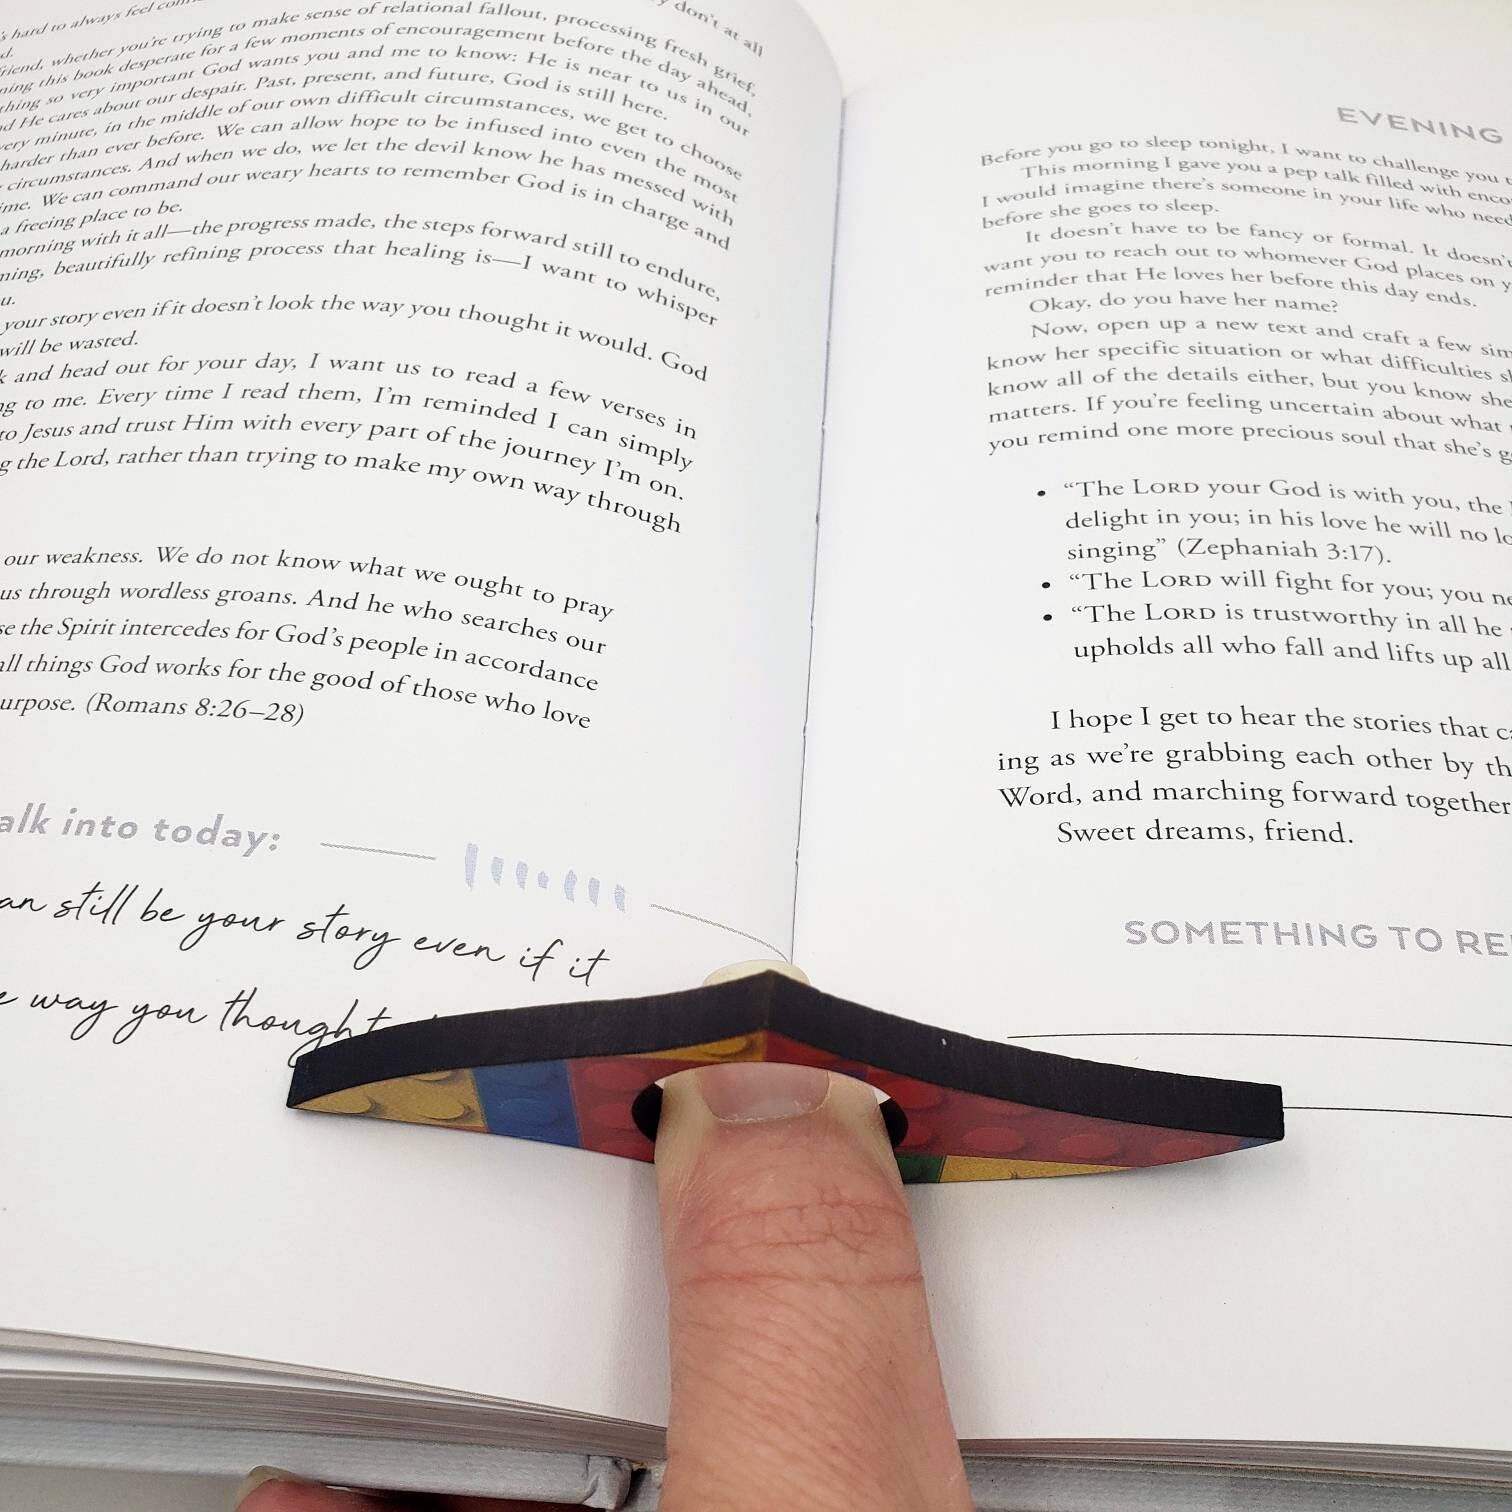 y don't at all
's hard to always feel
d.
friend, whether you're trying to make sense of relational fallout, processing fresh grief,
ning this book desperate for a few moments of encouragement before the day ahead,
thing so very important God wants you and me to know: He is near to us in our
nd He cares about our despair. Past, present, and future, God is still here.
very minute, in the middle of our own difficult circumstances, we get to choose
harder than ever before. We can allow hope to be infused into even the most
circumstances. And when we do, we let the devil know he has messed with
ime. We can command our weary hearts to remember God is in charge and
a freeing place to be.
morning with it all—the progress made, the steps forward still to endure,
ning, beautifully refining process that healing is—I want to whisper
u.
your story even if it doesn't look the way you thought it would. God
will be wasted.
k and head out for your day, I want us to read a few verses in
ng to me. Every time I read them, I'm reminded I can simply
to Jesus and trust Him with every part of the journey I'm on.
g the Lord, rather than trying to make my own way through
our weakness. We do not know what we ought to pray
us through wordless groans. And he who searches our
se the Spirit intercedes for God's people in accordance
all things God works for the good of those who love
urpose. (Romans 8:26–28)
alk into today:
an still be your story even if it
e way you thought
EVENING
Before you go to sleep tonight, I want to challenge you t
This morning I gave you a pep talk filled with enco
I would imagine there's someone in your life who need
before she goes to sleep.
It doesn't have to be fancy or formal. It doesn't
want you to reach out to whomever God places on y
reminder that He loves her before this day ends.
Okay, do you have her name?
Now, open up a new text and craft a few sim
know her specific situation or what difficulties sh
know all of the details either, but you know she
matters. If you're feeling uncertain about what
you remind one more precious soul that she's g
• “The LORD your God is with you, the
delight in you; in his love he will no lo
singing” (Zephaniah 3:17).
• “The LORD will fight for you; you ne
• “The LORD is trustworthy in all he
upholds all who fall and lifts up all
I hope I get to hear the stories that ca
ing as we're grabbing each other by th
Word, and marching forward together
Sweet dreams, friend.
SOMETHING TO RE